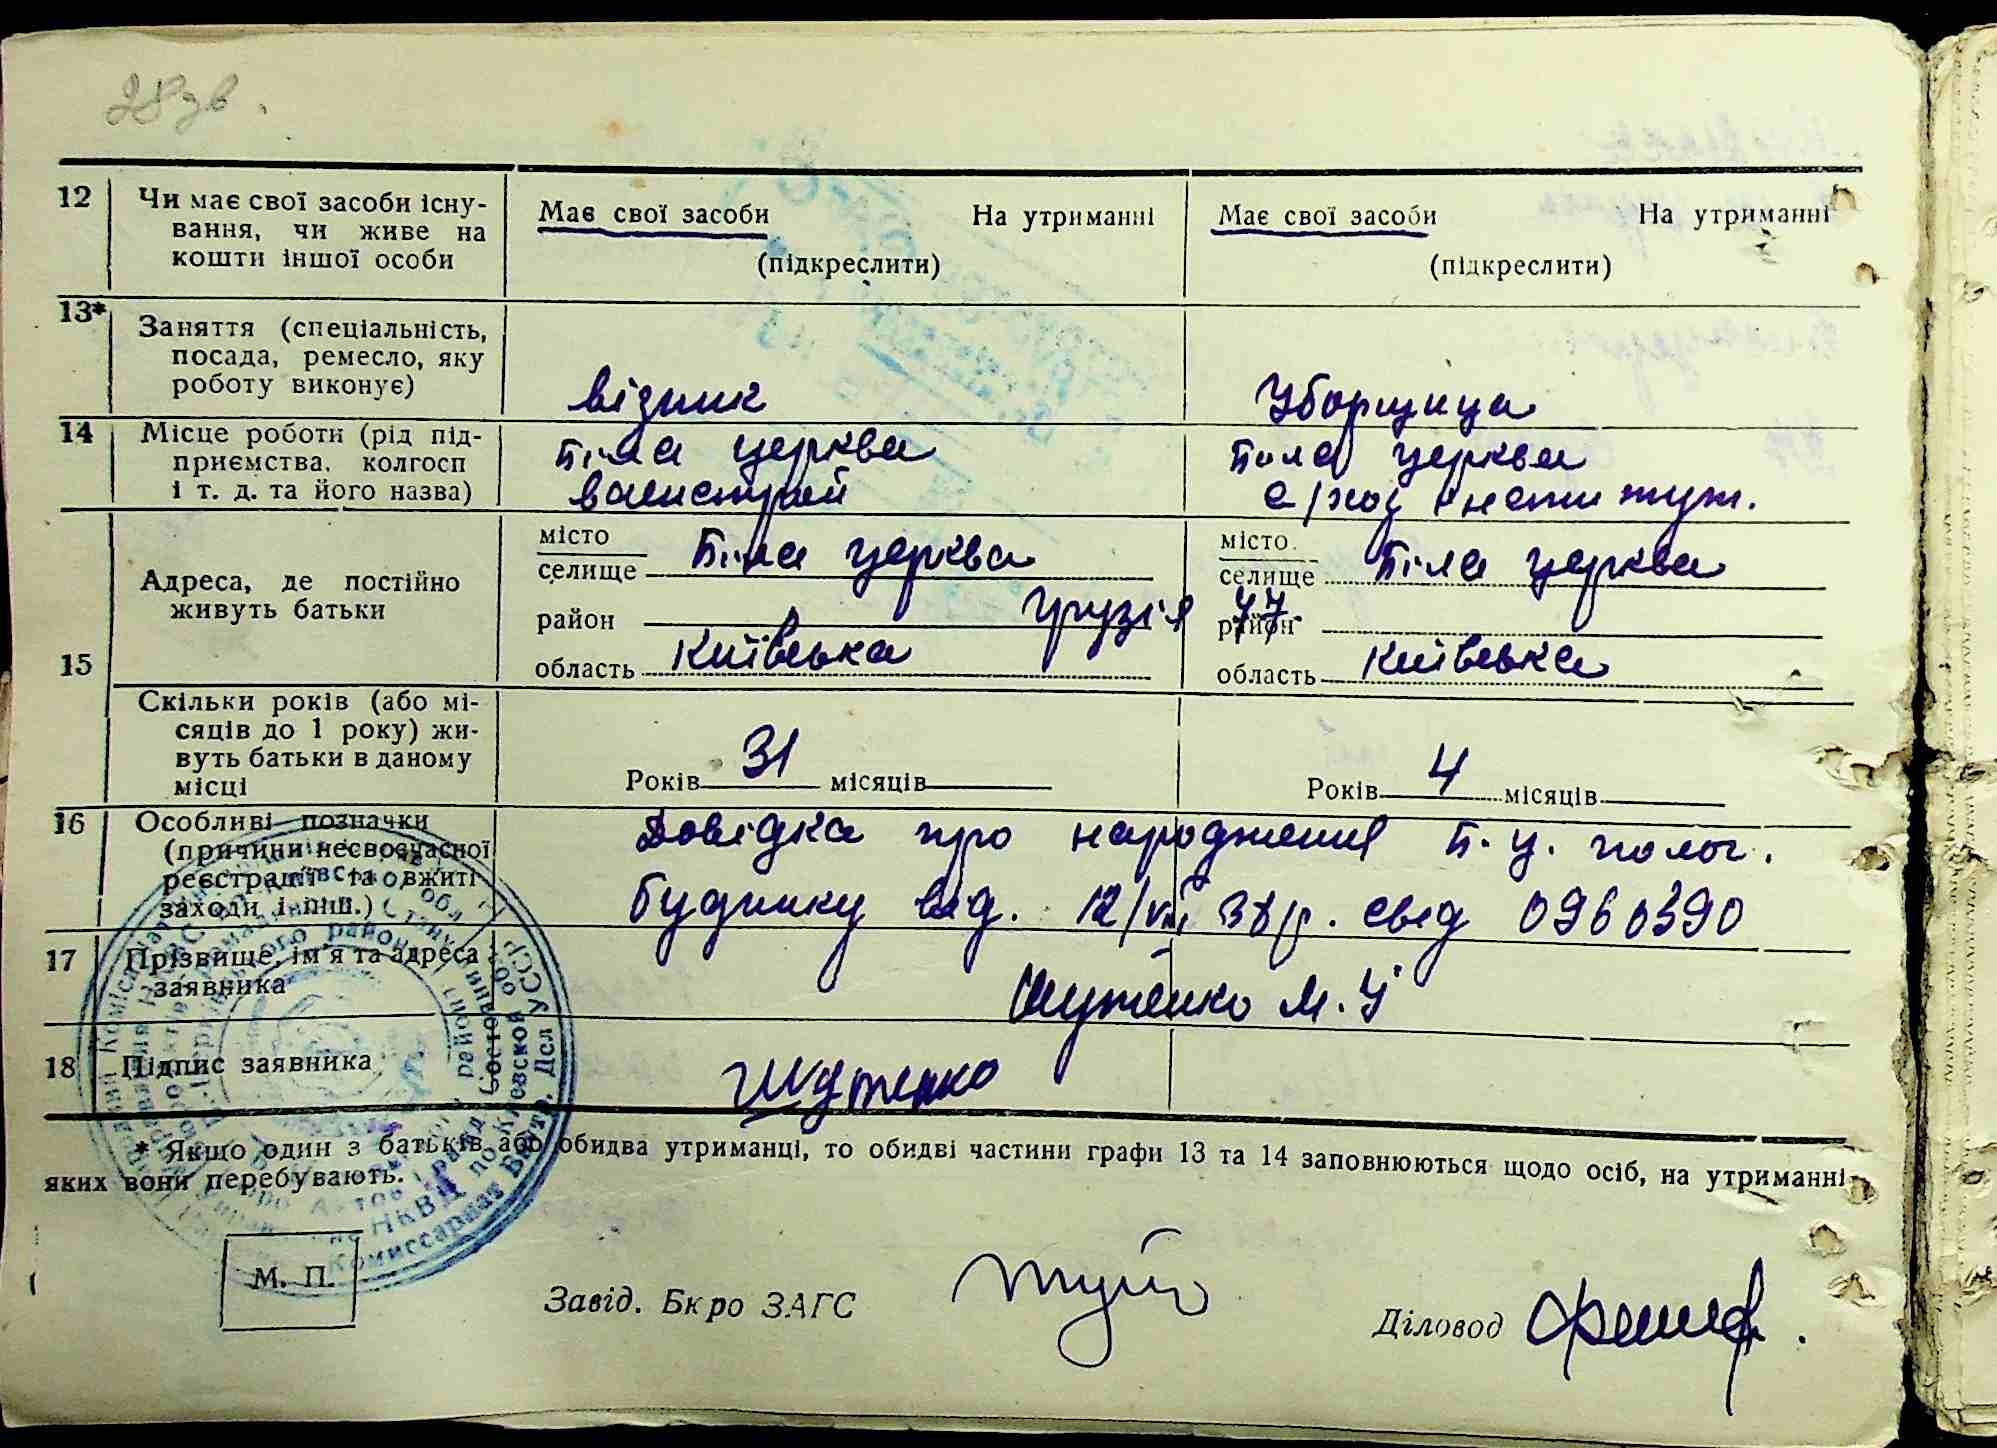 28 зв.
12 Чи має свої засоби існу-
вання, чи живе на
кошти іншої особи
Має свої засоби На утриманні
(підкреслити)
Має свої засоби На утриманні
(підкреслити)
13* Заняття (спеціальність,
посада, ремесло, яку
роботу виконує)
візник
Уборщица
14 Місце роботи (рід під-
приємства, колгосп
і т. д. та його назва)
Біла церква
Біла церква
с/хоз інститут.
15 Адреса, де постійно
живуть батьки
місто
селище Біла церква
район Грузія 47
область Київська
місто
селище Біла церква
район
область Київська
Скільки років (або мі-
сяців до 1 року) жи-
вуть батьки в даному
місці
Років 31 місяців
Років 4 місяців
16 Особливі позначки
(причини несвоєчасної
реєстрації та вжиті
заходи і інш.)
Довідка про народження Б. Ц. полог.
будинку від. 12/VII 38 р. свід 0960390
17 Прізвище, ім'я та адреса
заявника
Шутенко М. І
18 Підпис заявника
Шутенко
* Якщо один з батьків або обидва утриманці, то обидві частини графи 13 та 14 заповнюються щодо осіб, на утриманні
яких вони перебувають.
М. П.
Завід. Бюро ЗАГС
Діловод